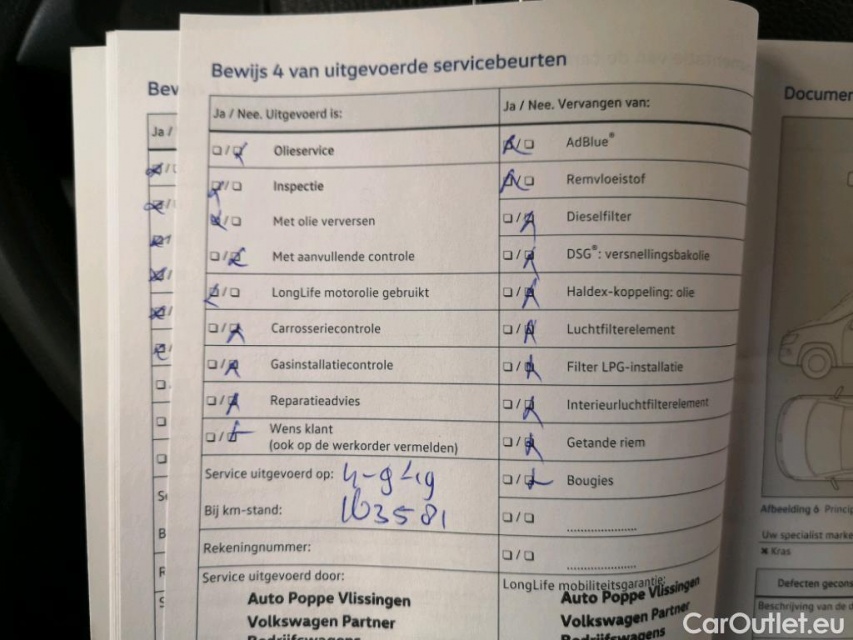 Bewijs 4 van uitgevoerde servicebeurten
Ja / Nee. Uitgevoerd is:
Olieservice
Inspectie
Met olie verversen
Met aanvullende controle
LongLife motorolie gebruikt
Carrosseriecontrole
Gasinstallatiecontrole
Reparatieadvies
Wens klant
(ook op de werkorder vermelden)
Service uitgevoerd op: 4-9-19
Bij km-stand: 103581
Rekeningnummer:
Service uitgevoerd door:
Auto Poppe Vlissingen
Volkswagen Partner
Bedrijfswagens
Ja / Nee. Vervangen van:
AdBlue®
Remvloeistof
Dieselfilter
DSG®: versnellingsbakolie
Haldex-koppeling: olie
Luchtfilterelement
Filter LPG-installatie
Interieurluchtfilterelement
Getande riem
Bougies
LongLife mobiliteitsgarantie:
Auto Poppe Vlissingen
Volkswagen Partner
Bedrijfswagens
Bev
Ja /
Documen
Afbeelding 6 Princip
Uw specialist marke
Kras
Defecten gecons
Beschrijving van de d
CarOutlet.eu